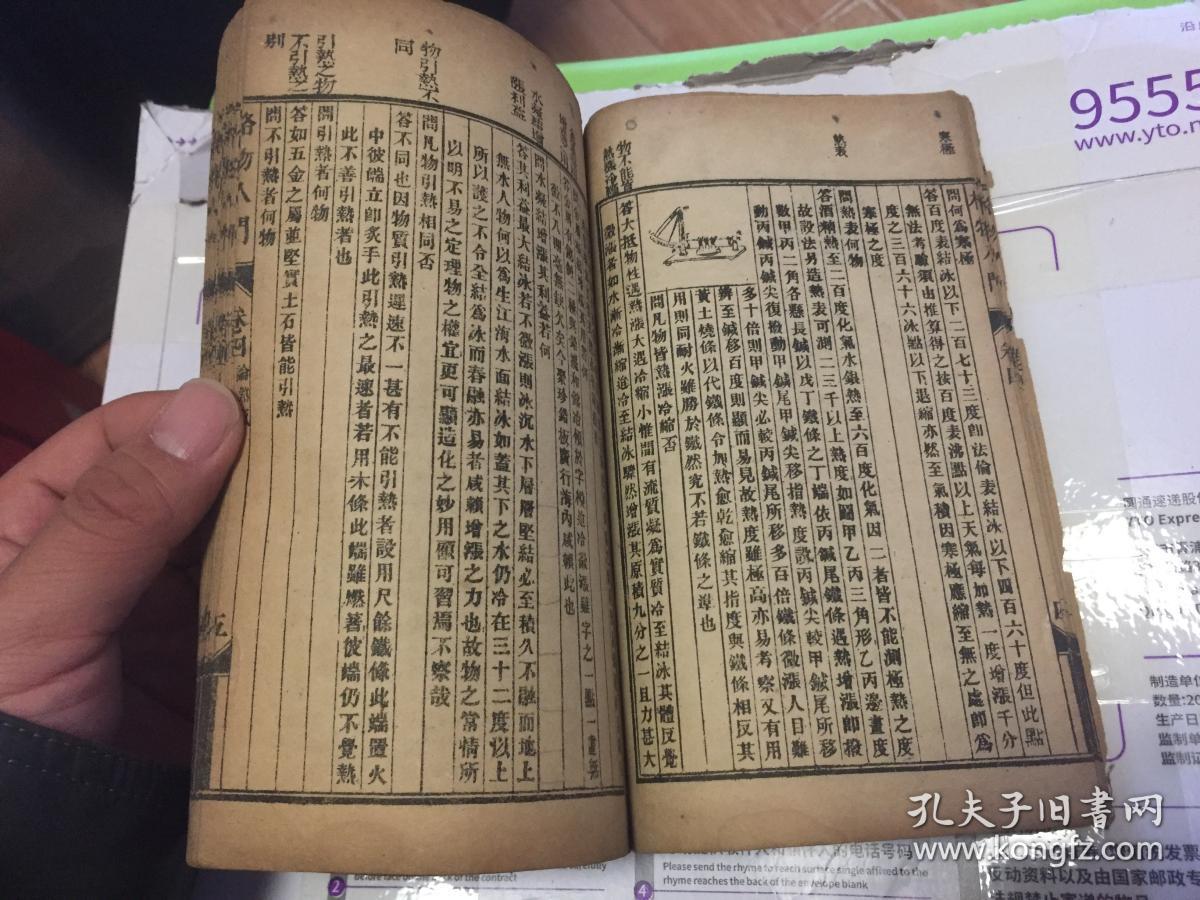 寒極
問何爲寒極
答百度表結冰以下二百七十三度卽法倫表結冰以下四百六十度但此點
無法考驗須由推算得之按百度表沸點以上天氣每加熱一度增漲千分
度之三百六十六冰點以下退縮亦然至氣積因寒極應縮至無之處卽爲
寒極之度
熱表
問熱表何物
答酒精熱至二百度化氣水銀熱至六百度化氣因二者皆不能測極熱之度
故設法另造熱表可測二三千以上熱度如圖甲乙丙三角形乙丙邊畫度
數甲丙二角各懸長鍼以戊丁鐵條之丁端依丙鍼尾鐵條遇熱增漲卽撥
動丙鍼丙鍼尖復撥動甲鍼尾甲鍼尖移指熱度設丙鍼尖較甲鍼尾所移
多十倍則甲鍼尖必較丙鍼尾所移多百倍鐵條微漲人目難
辨至鍼移百度則顯而易見故熱度雖極高亦易考察又有用
黃土燒條以代鐵條令加熱愈乾愈縮其指度與鐵條相反其
用則同耐火雖勝於鐵然究不若鐵條之準也
物不能皆
熱漲冷縮
問凡物皆熱漲冷縮否
答大抵物性遇熱漲大遇冷縮小惟間有流質凝爲實質冷至結冰其體反覺
微漲者如水漸冷漸縮迨冷至結冰驟然增漲其原積九分之一且力甚大
水凝結增
漲利益
問水凝結增漲其利益若何
答其利益最大結冰若不微漲則冰沉水下層層堅結必至積久不融而地上
無水人物何以爲生江海水面結冰如蓋其下之水仍冷在三十二度以上
所以護之不令全結爲冰而春融亦易者咸賴增漲之力也故物之常情所
以明不易之定理物之權宜更可顯造化之妙用顧可習焉不察哉
物引熱不
同
問凡物引熱相同否
答不同也因物質引熱遲速不一甚有不能引熱者設用尺餘鐵條此端置火
中彼端立卽炙手此引熱之最速者若用木條此端雖燃著彼端仍不覺熱
此不善引熱者也
引熱之物
不引熱之
別
問引熱者何物
答如五金之屬並堅實土石皆能引熱
問不引熱者何物
格物入門
卷四
9555
www.yto.n
圓通速遞股份
YTO Expres
制造单位
数量:20
生产日
监制单
监制记
Please send the rhyme to reach surface single affixed to the
rhyme reaches the back of the envelope blank
2
4
孔夫子旧书网
www.kongfz.com